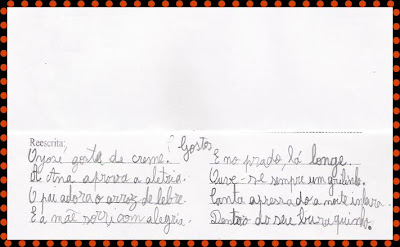 Reescrita:
Gostos
O José gosta de creme.
A Ana aprova a aletria.
O pai adora o arroz de lebre.
E a mãe sorri com alegria.
E no prado, lá longe.
Ouve-se sempre um grilinho.
Canta apressado a noite inteira.
Dentro do seu buraquinho.